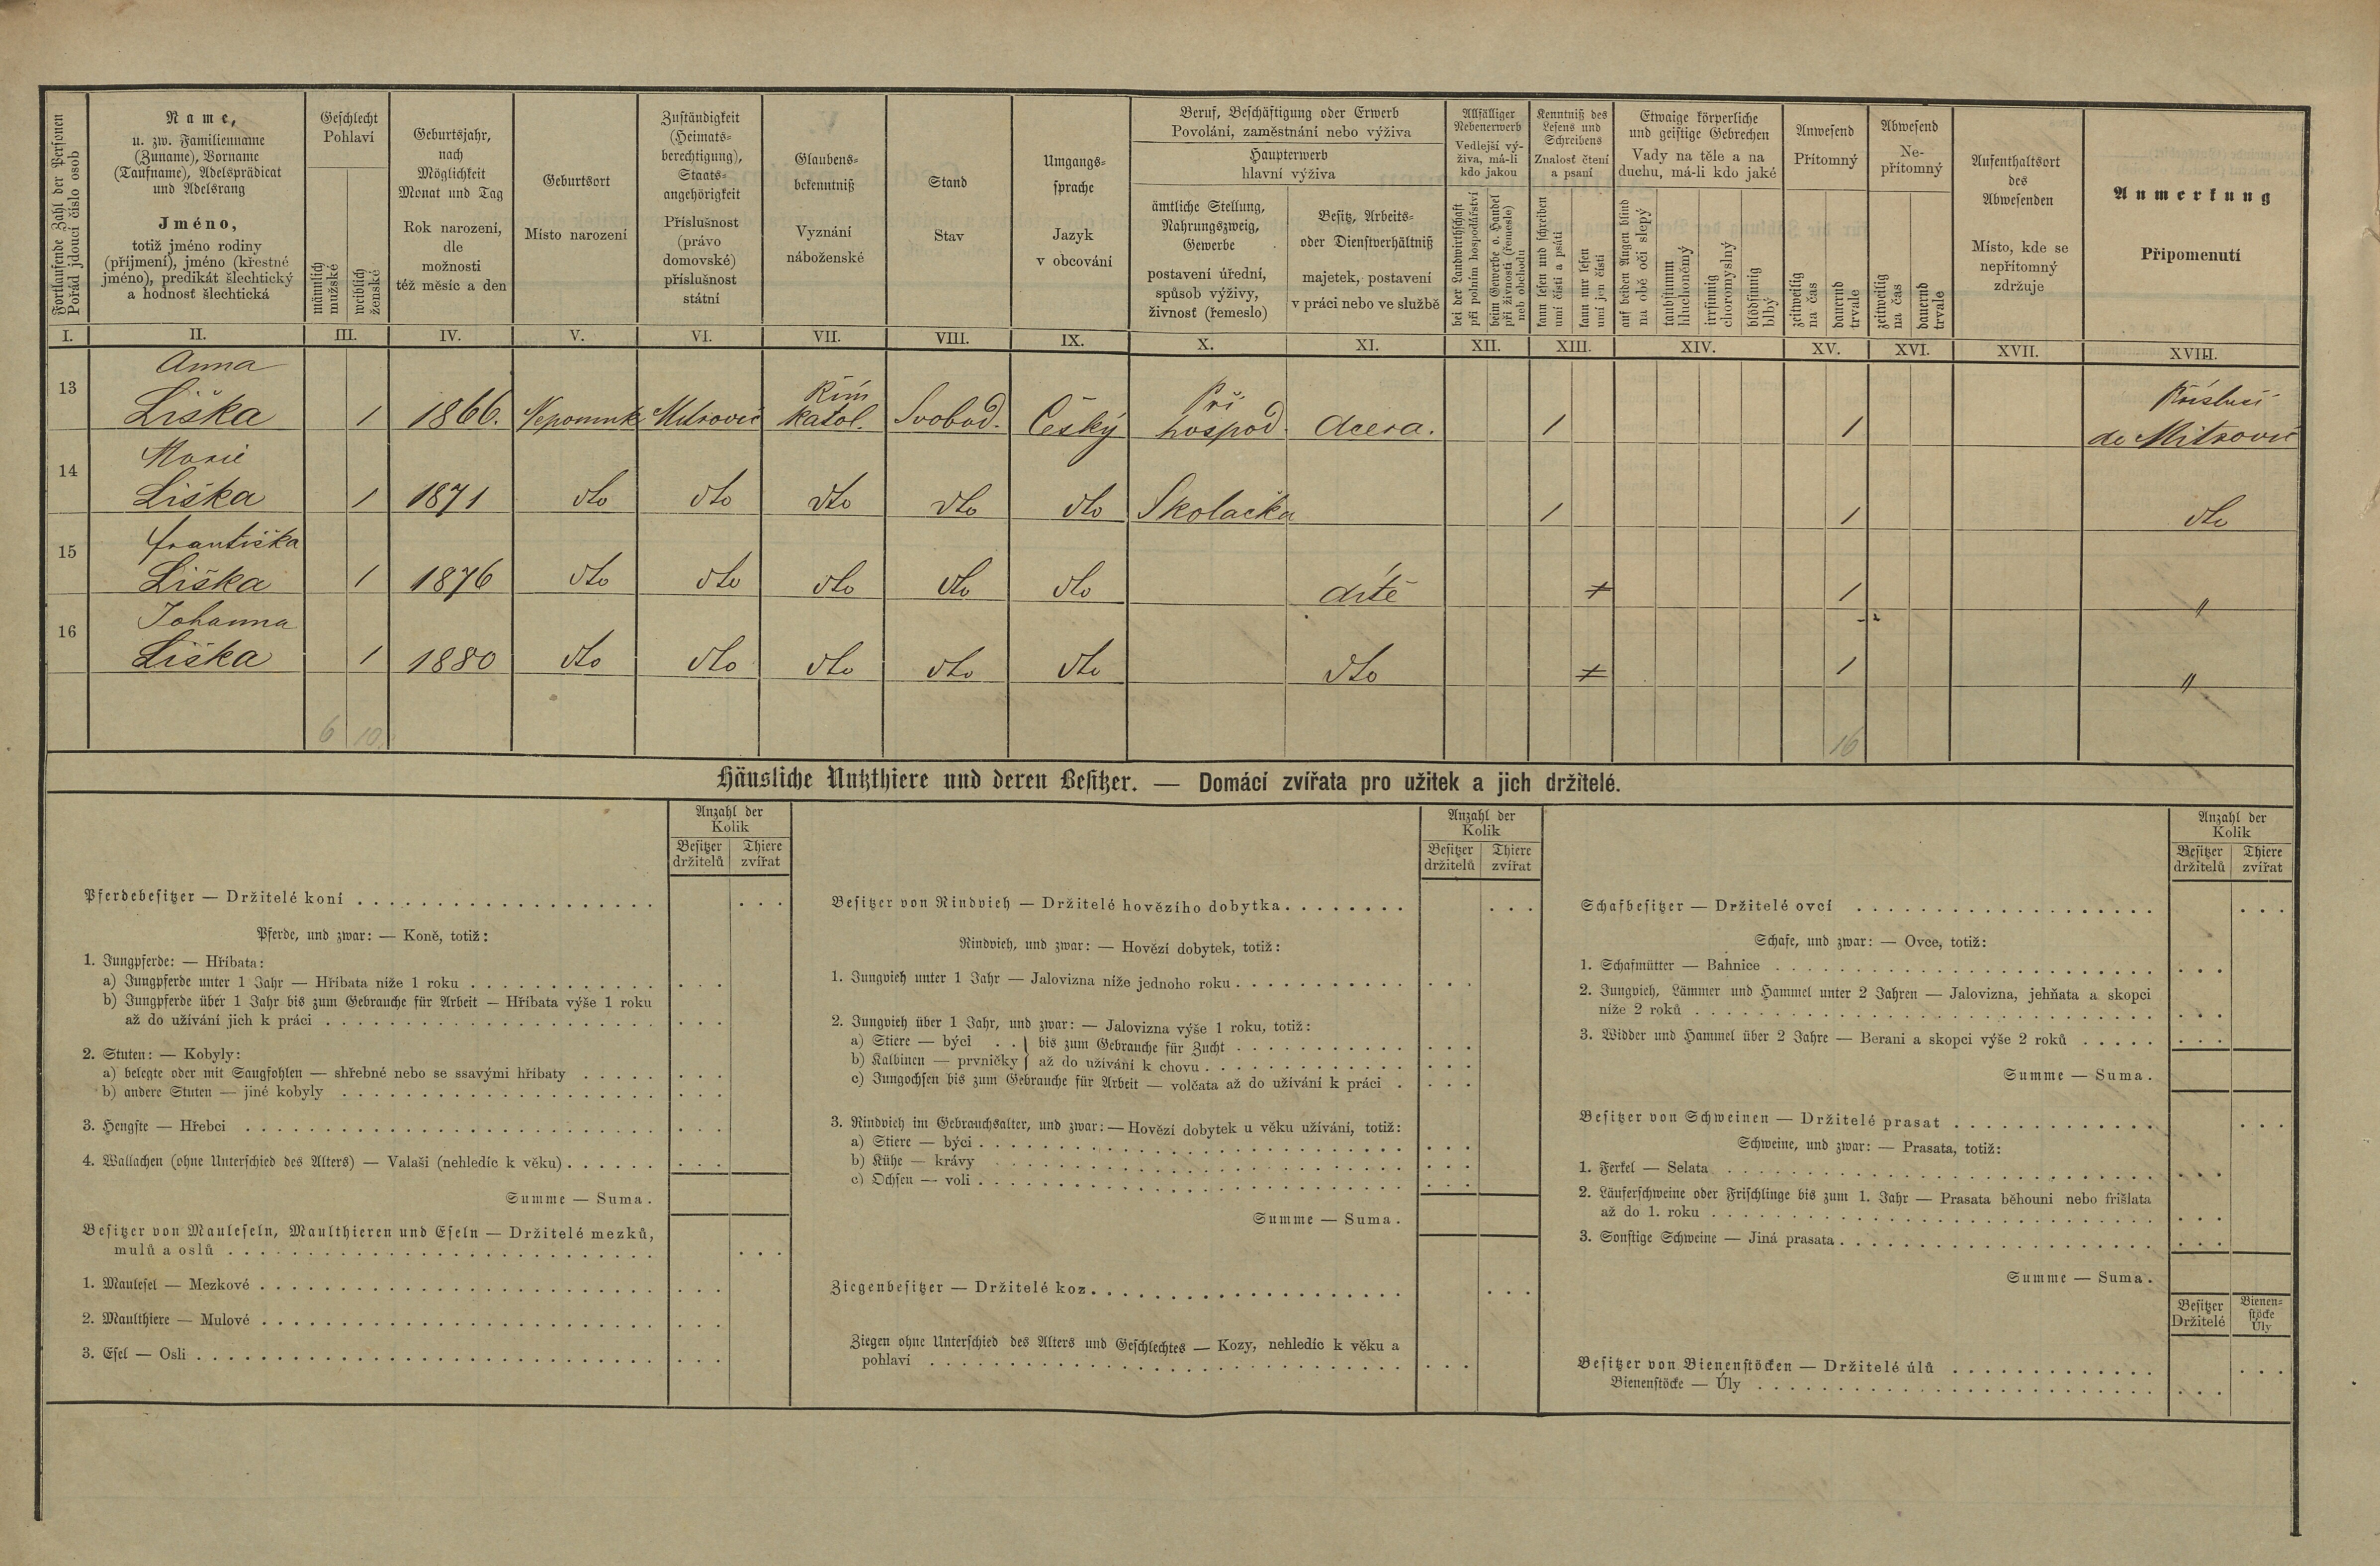 Fortlaufende Zahl der Personen
Pořád jdoucí číslo osob
Name,
u. zw. Familienname
(Zuname), Vorname
(Taufname), Adelsprädicat
und Adelsrang
Jméno,
totiž jméno rodiny
(příjmení), jméno (křestné
jméno), predikát šlechtický
a hodnosť šlechtická
Geschlecht
Pohlaví
männlich
mužské
weiblich
ženské
Geburtsjahr,
nach
Möglichkeit
Monat und Tag
Rok narození,
dle
možnosti
též měsíc a den
Geburtsort
Místo narození
Zuständigkeit
(Heimats-
berechtigung),
Staats-
angehörigkeit
Příslušnost
(právo
domovské)
příslušnost
státní
Glaubens-
bekenntniß
Vyznání
náboženské
Stand
Stav
Umgangs-
sprache
Jazyk
v obcování
Beruf, Beschäftigung oder Erwerb
Povolání, zaměstnání nebo výživa
Haupterwerb
hlavní výživa
ämtliche Stellung,
Nahrungszweig,
Gewerbe
postavení úřední,
spůsob výživy,
živnosť (řemeslo)
Besitz, Arbeits-
oder Dienstverhältniß
majetek, postavení
v práci nebo ve službě
Allfälliger
Nebenerwerb
Vedlejší vý-
živa, má-li
kdo jakou
bei der Landwirthschaft
při polním hospodářství
beim Gewerbe o. Handel
při živnosti (řemesle)
neb obchodu
Kenntniß des
Lesens und
Schreibens
Znalosť čtení
a psaní
kann lesen und schreiben
umí čísti a psáti
kann nur lesen
umí jen čísti
Etwaige körperliche
und geistige Gebrechen
Vady na těle a na
duchu, má-li kdo jaké
auf beiden Augen blind
na obě oči slepý
taubstumm
hluchoněmý
irrsinnig
choromyslný
blödsinnig
blbý
Anwesend
Přítomný
zeitweilig
na čas
dauernd
trvale
Abwesend
Ne-
přítomný
zeitweilig
na čas
dauernd
trvale
Aufenthaltsort
des
Abwesenden
Místo, kde se
nepřítomný
zdržuje
Anmerkung
Připomenutí
I. II. III. IV. V. VI. VII. VIII. IX. X. XI. XII. XIII. XIV. XV. XVI. XVII. XVIII.
Anna
13 Řím Při Přísluší
Liška 1 1866. Nepomuk Mitrovic katol. Svobod. Český hospod. dcera. 1 1 do Mitrovic
Marie
14
Liška 1 1871 dto dto dto dto dto Školačka 1 1 dto
Františka
15
Liška 1 1876 dto dto dto dto dto dítě 1 1 "
Johanna
16
Liška 1 1880 dto dto dto dto dto dto 1 1 "
6 10 16
Häusliche Nutzthiere und deren Besitzer. — Domácí zvířata pro užitek a jich držitelé.
Anzahl der
Kolik
Besitzer
držitelů
Thiere
zvířat
Pferdebesitzer — Držitelé koní
Pferde, und zwar: — Koně, totiž:
1. Jungpferde: — Hříbata:
a) Jungpferde unter 1 Jahr — Hříbata níže 1 roku
b) Jungpferde über 1 Jahr bis zum Gebrauche für Arbeit — Hříbata výše 1 roku
až do užívání jich k práci
2. Stuten: — Kobyly:
a) belegte oder mit Saugfohlen — shřebné nebo se ssavými hříbaty
b) andere Stuten — jiné kobyly
3. Hengste — Hřebci
4. Wallachen (ohne Unterschied des Alters) — Valaši (nehledíc k věku)
Summe — Suma.
Besitzer von Mauleseln, Maulthieren und Eseln — Držitelé mezků,
mulů a oslů
1. Maulesel — Mezkové
2. Maulthiere — Mulové
3. Esel — Osli
Anzahl der
Kolik
Besitzer
držitelů
Thiere
zvířat
Besitzer von Rindvieh — Držitelé hovězího dobytka
Rindvieh, und zwar: — Hovězí dobytek, totiž:
1. Jungvieh unter 1 Jahr — Jalovizna níže jednoho roku
2. Jungvieh über 1 Jahr, und zwar: — Jalovizna výše 1 roku, totiž:
a) Stiere — býci . . } bis zum Gebrauche für Zucht
b) Kalbinen — prvničky } až do užívání k chovu
c) Jungochsen bis zum Gebrauche für Arbeit — volčata až do užívání k práci
3. Rindvieh im Gebrauchsalter, und zwar: — Hovězí dobytek u věku užívání, totiž:
a) Stiere — býci
b) Kühe — krávy
c) Ochsen — voli
Summe — Suma.
Ziegenbesitzer — Držitelé koz
Ziegen ohne Unterschied des Alters und Geschlechtes — Kozy, nehledíc k věku a
pohlaví
Anzahl der
Kolik
Besitzer
držitelů
Thiere
zvířat
Schafbesitzer — Držitelé ovcí
Schafe, und zwar: — Ovce, totiž:
1. Schafmütter — Bahnice
2. Jungvieh, Lämmer und Hammel unter 2 Jahren — Jalovizna, jehňata a skopci
níže 2 roků
3. Widder und Hammel über 2 Jahre — Berani a skopci výše 2 roků
Summe — Suma.
Besitzer von Schweinen — Držitelé prasat
Schweine, und zwar: — Prasata, totiž:
1. Ferkel — Selata
2. Läuferschweine oder Frischlinge bis zum 1. Jahr — Prasata běhouni nebo frišlata
až do 1. roku
3. Sonstige Schweine — Jiná prasata
Summe — Suma.
Besitzer
Držitelé
Bienen-
stöcke
Úly
Besitzer von Bienenstöcken — Držitelé úlů
Bienenstöcke — Úly